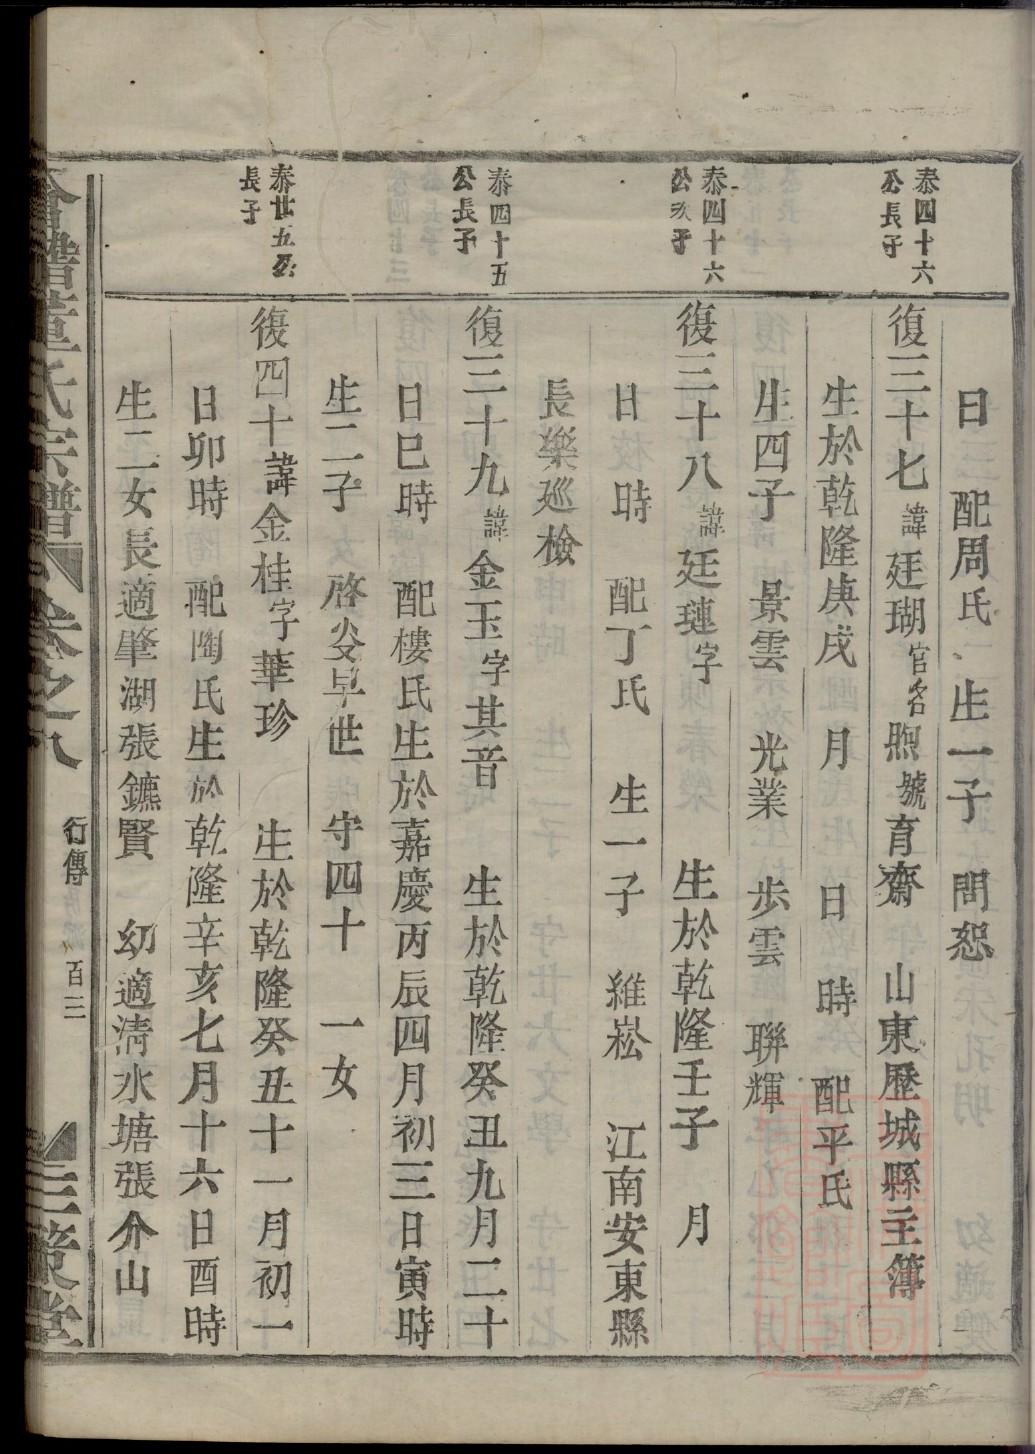 日　配周氏　生一子　問恕
泰四十六
公長子
復三十七諱廷瑚官名煦號育齋　山東歷城縣主簿
生於乾隆庚戌　月　日　時　配平氏
生四子　景雲　光業　步雲　聯輝
泰四十六
公次子
復三十八諱廷璉字　生於乾隆壬子　月
日　時　配丁氏　生一子　維崧　江南安東縣
長樂廵檢
泰四十五
公長子
復三十九諱金玉字其音　生於乾隆癸丑九月二十
日巳時　配樓氏生於嘉慶丙辰四月初三日寅時
生二子　啓炎早世　守四十　一女
泰廿五公
長子
復四十諱金桂字華珍　生於乾隆癸丑十一月初一
日卯時　配陶氏生於乾隆辛亥七月十六日酉時
生二女長適肇湖張鑣賢　幼適淸水塘張介山
會稽章氏宗譜　卷之八　行傳　百三　三策堂